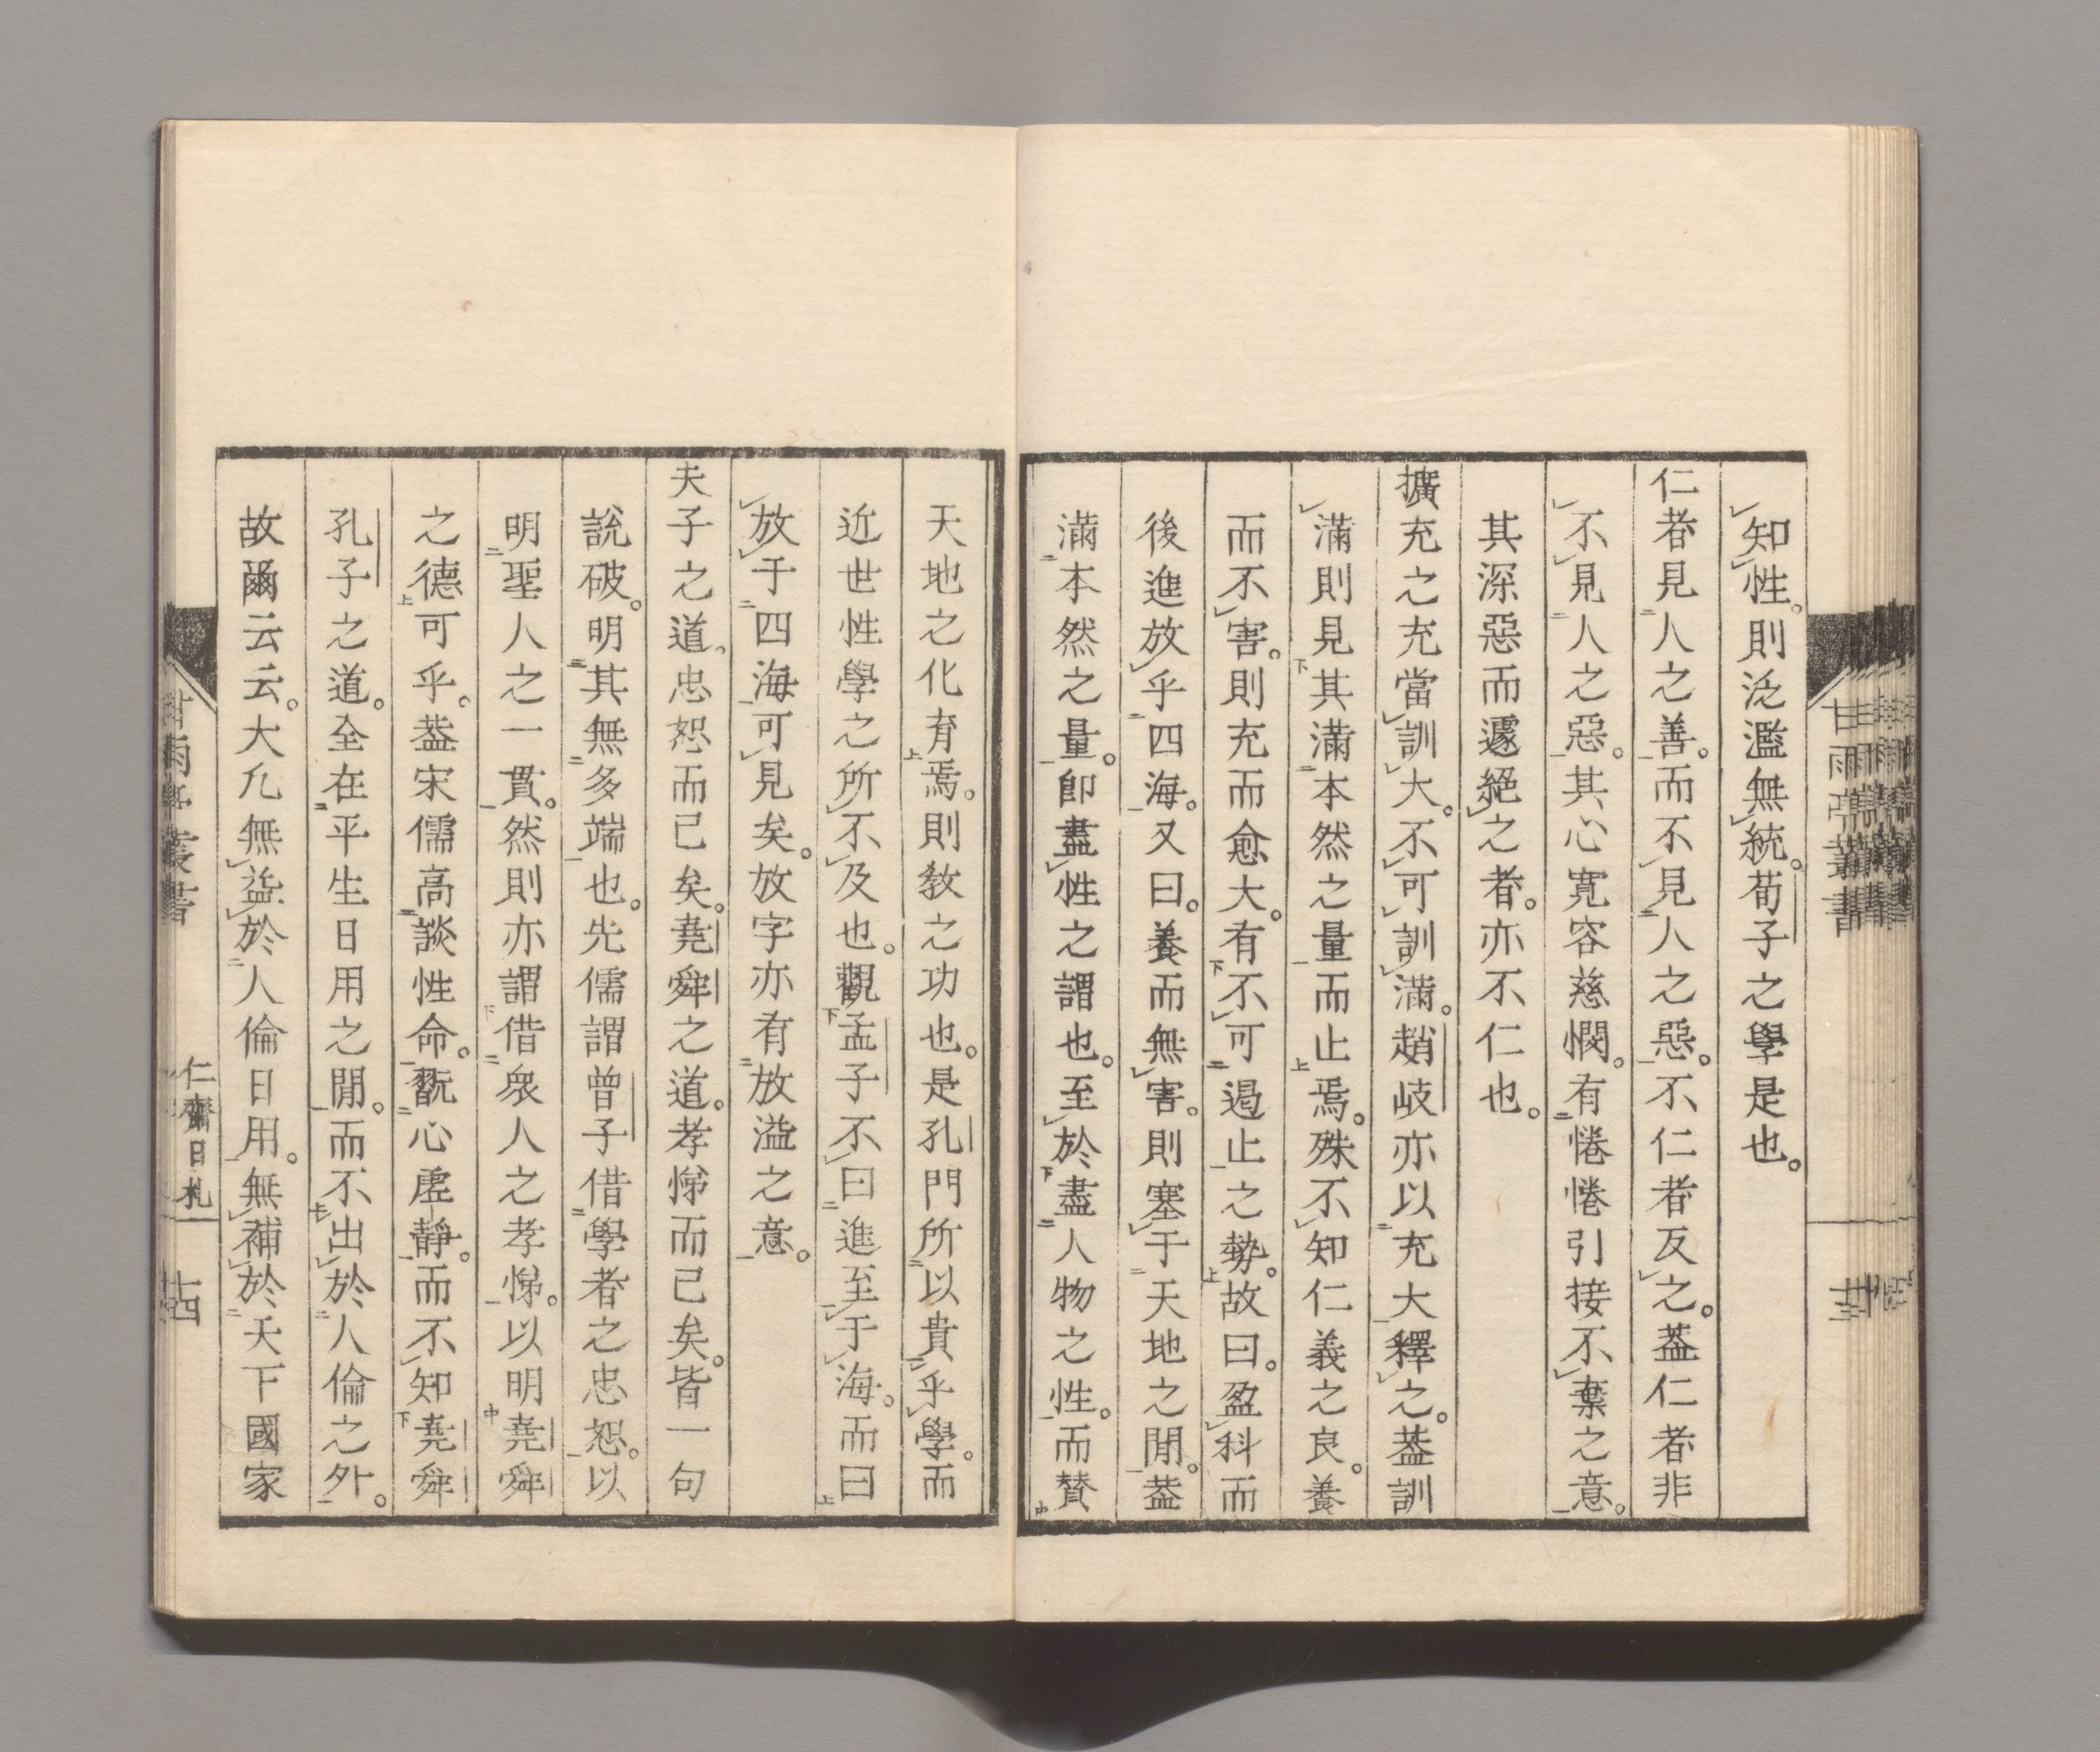 知性。則泛濫無統。荀子之學是也。
仁者見人之善。而不見人之惡。不仁者反之。葢仁者非
不見人之惡。其心寬容慈憫。有惓惓引接不棄之意。
其深惡而遽絕之者。亦不仁也。
擴充之充當訓大。不可訓滿。趙岐亦以充大釋之。葢訓
滿則見其滿本然之量而止焉。殊不知仁義之良。養
而不害。則充而愈大。有不可遏止之勢。故曰。盈科而
後進放乎四海。又曰。養而無害。則塞于天地之閒。葢
滿本然之量。卽盡性之謂也。至於盡人物之性。而贊
天地之化育焉。則敎之功也。是孔門所以貴乎學。而
近世性學之所不及也。觀孟子不曰進至于海。而曰
放于四海可見矣。放字亦有放溢之意。
夫子之道。忠恕而已矣。堯舜之道。孝悌而已矣。皆一句
說破。明其無多端也。先儒謂曾子借學者之忠恕。以
明聖人之一貫。然則亦謂借衆人之孝悌。以明堯舜
之德可乎。葢宋儒高談性命。翫心虛靜。而不知堯舜
孔子之道。全在平生日用之閒。而不出於人倫之外。
故爾云云。大凡無益於人倫日用。無補於天下國家
甘雨亭叢書
仁齋日札
十四
甘雨亭叢書